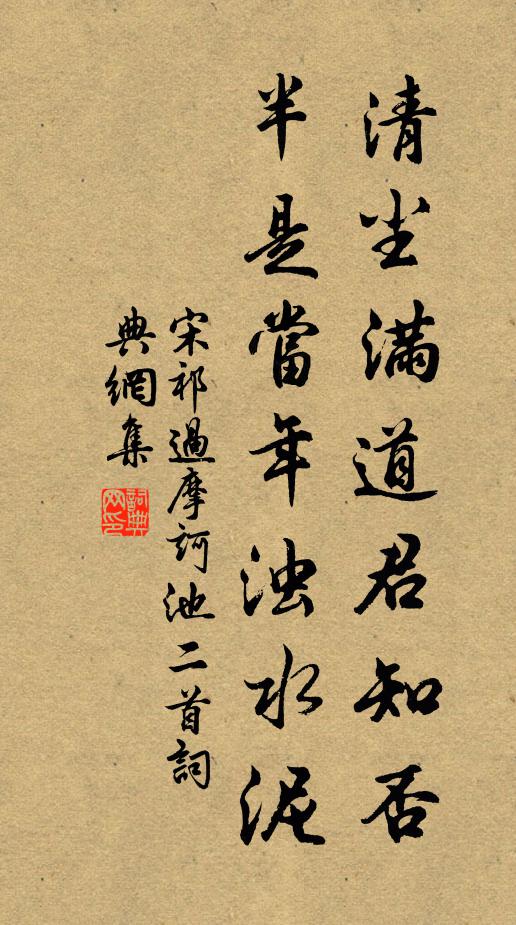 清尘满道君知否
半是當年浊水泥
宋祁過摩訶池二首詞
典網集
詞典
网印